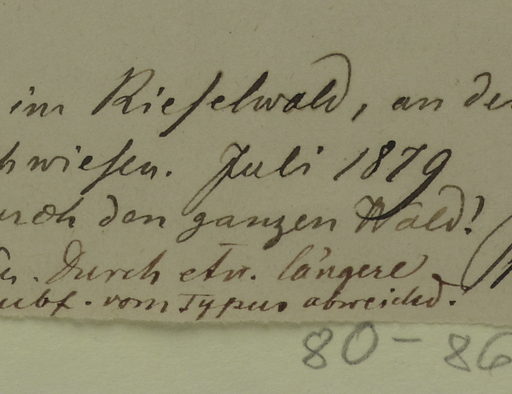 im Rieselwald, an der
hwiesen. Juli 1879
urch den ganzen Wald!
Durch etw. längere
ubf. vom Typus abweichd.
80-86